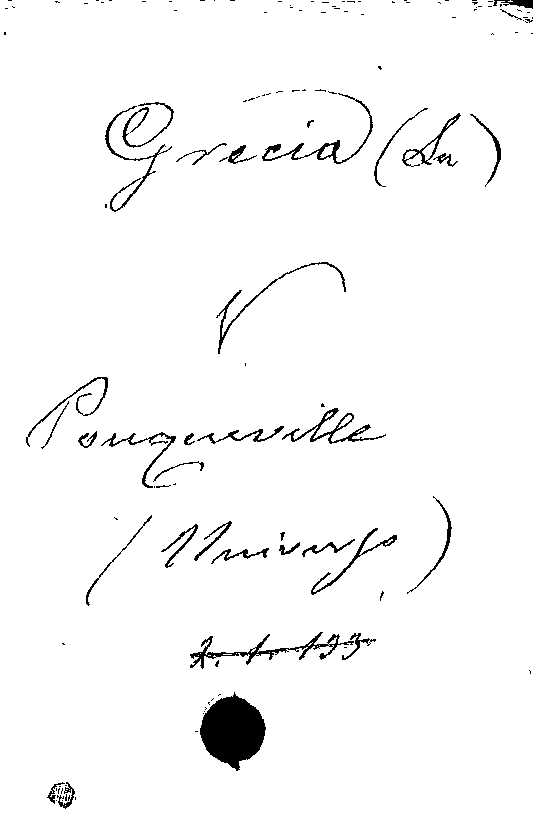 Grecia (La)
V
Pouqueville
(Universo)
2. 1. 133